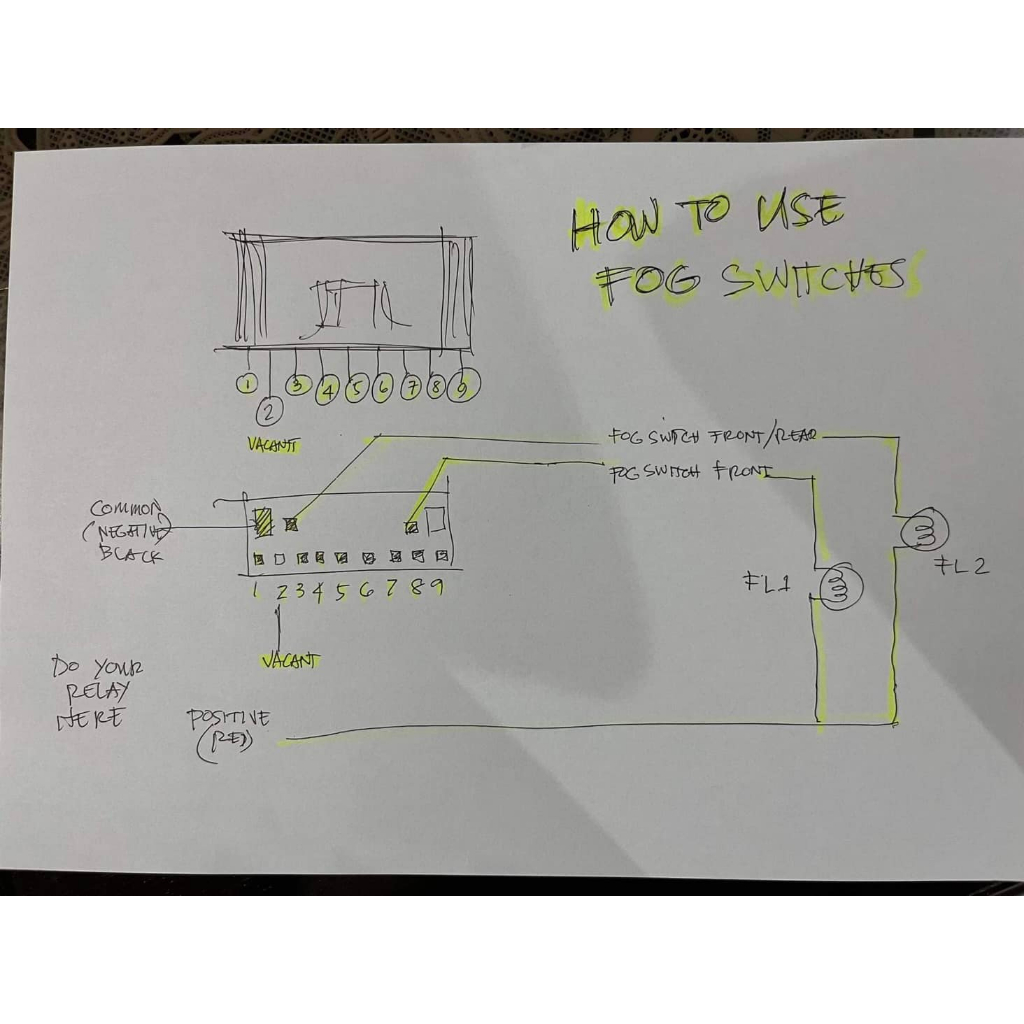 HOW TO USE
FOG SWITCHES
1 2 3 4 5 6 7 8 9
VACANT
FOG SWITCH FRONT/REAR
FOG SWITCH FRONT
COMMON
(NEGATIVE)
BLACK
1 2 3 4 5 6 7 8 9
VACANT
FL1
FL2
DO YOUR
RELAY
HERE
POSITIVE
(RED)